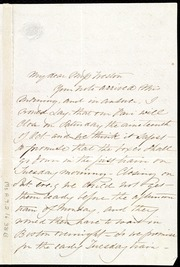 My dear Miss Weston
Your note arrived this
morning, and in answer, I
would say that our Fair will
close on Saturday the nineteenth
of Oct. and we think it safest
to promise that the boxes shall
go down in the first train on
Tuesday morning. Closing on
Sat. eve, we could not get
them ready before the afternoon
train of Monday, and they
would then have to wait in
Boston overnight - so we promise
for the early Tuesday train -